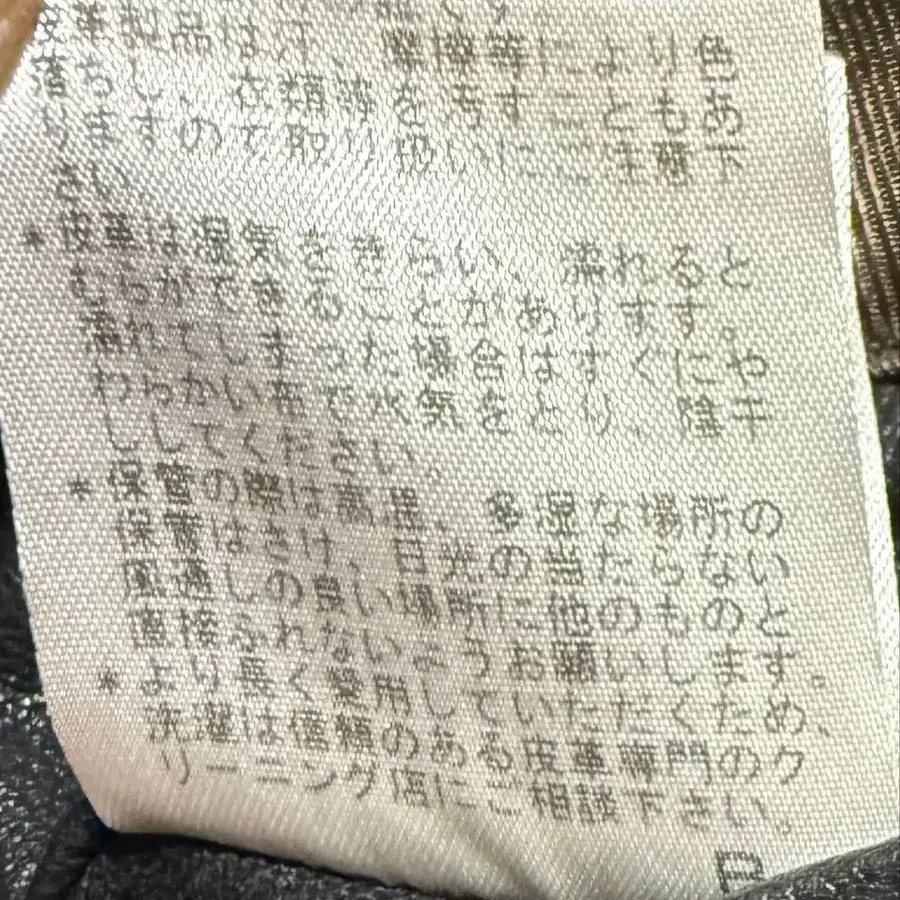 革製品は汗、摩擦等により色
落ちし、衣類等を汚すこともあ
りますので取り扱いにご注意下
さい。
*皮革は湿気をきらい、濡れると
むらができることがあります。
濡れてしまった場合はすぐにや
わらかい布で水気をとり、陰干
ししてください。
*保管の際は高温、多湿な場所の
保管はさけ、日光の当たらない
風通しの良い場所に他のものと
直接ふれないようお願いします。
*より長く愛用していただくため、
洗濯は信頼のある皮革専門のク
リーニング店にご相談下さい。